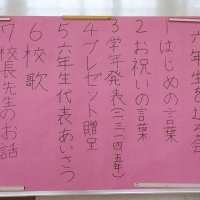 六年生を送る会
1 はじめの言葉
2 お祝いの言葉
3 学年発表(一二三四五年)
4 プレゼント贈呈
5 六年生代表あいさつ
6 校歌
7 校長先生のお話